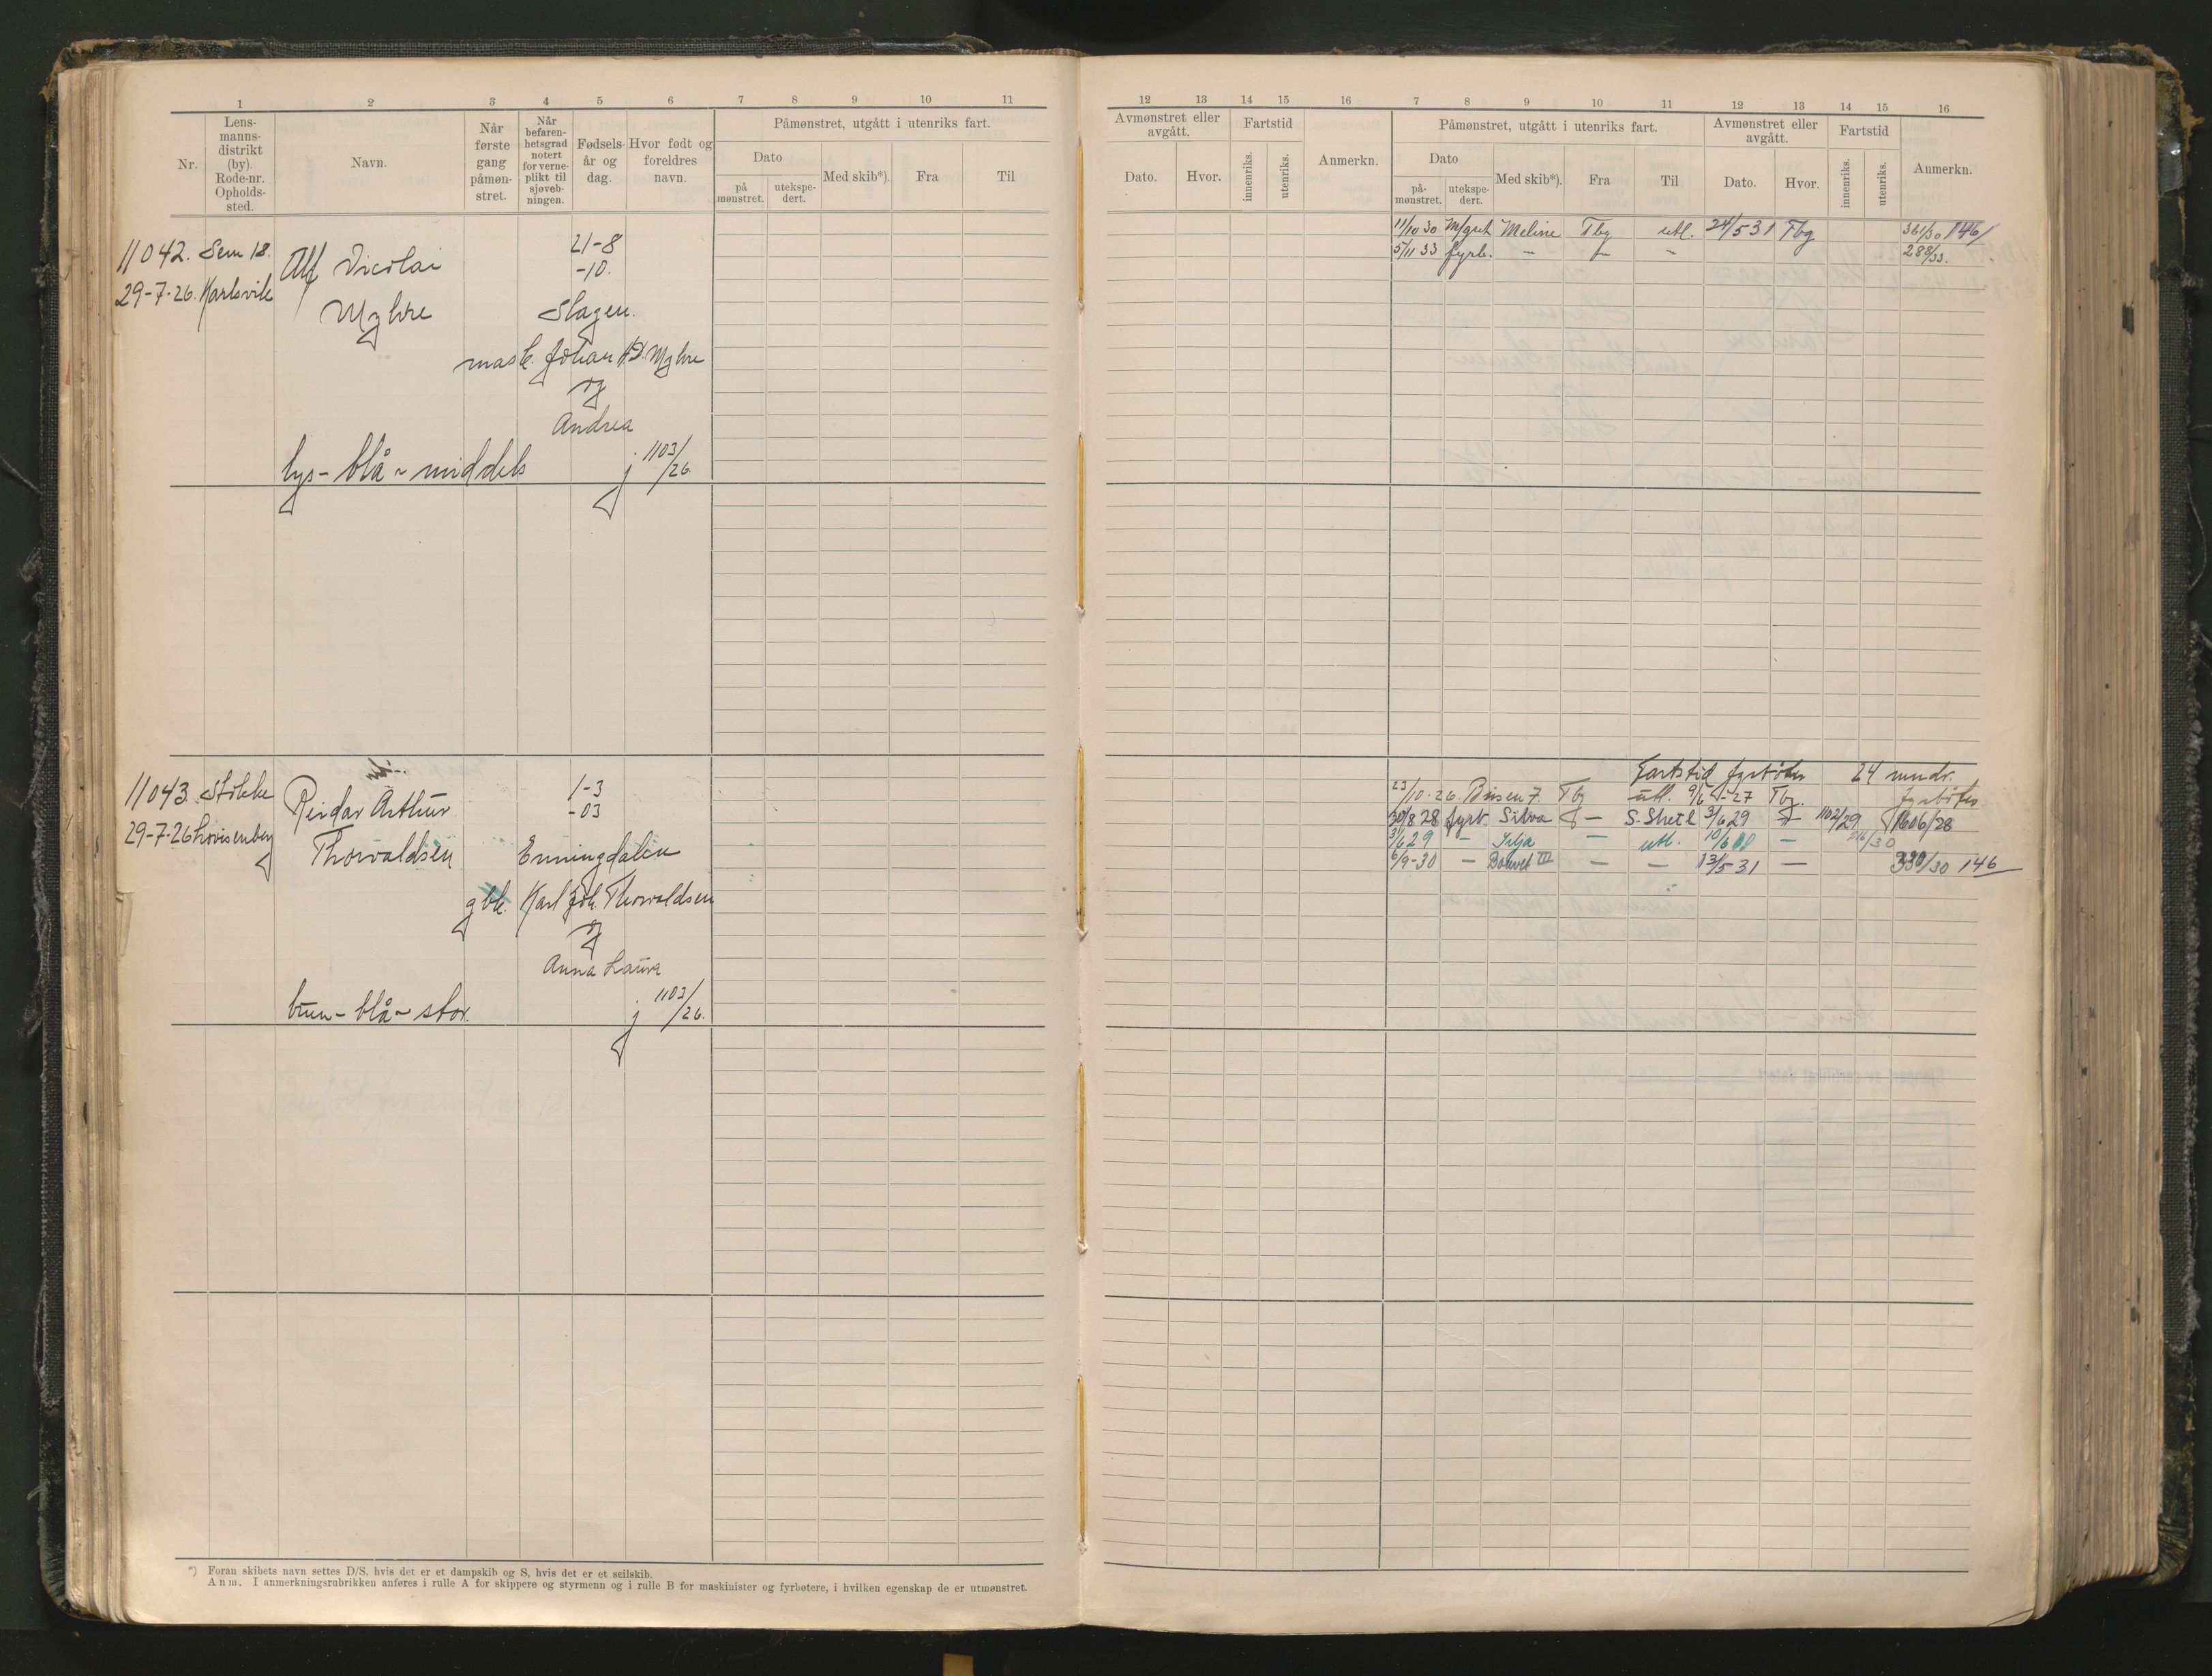 1 2 3 4 5 6 7 8 9 10 11
Nr. Lensmannsdistrikt (by). Rode-nr. Opholdssted. Navn. Når første gang påmønstret. Når befarenhetsgrad notert for verneplikt til sjøvebningen. Fødselsår og dag. Hvor født og foreldres navn. Påmønstret, utgått i utenriks fart.
Dato Med skib*). Fra Til
på mønstret. utekspedert.
11042. Sem 18. Alf Nicolai 21-8
29-7-26. Karlsvik -10.
Myhre Slagen.
mask. Johan Myhre
og
Andrea
lys - blå - middels j 1103/26
11043. Stokke Reidar Arthur 1-3
29-7-26 Lovisenberg -03
Thorvaldsen Enningdalen
gbr. Karl Joh. Thorvaldsen
og
Anna Laura
brun - blå - stor. j 1103/26.
*) Foran skibets navn settes D/S. hvis det er et dampskib og S, hvis det er et seilskib.
Anm. I anmerkningsrubrikken anføres i rulle A for skippere og styrmenn og i rulle B for maskinister og fyrbøtere, i hvilken egenskap de er utmønstret.
12 13 14 15 16 7 8 9 10 11 12 13 14 15 16
Avmønstret eller avgått. Fartstid Anmerkn. Påmønstret, utgått i utenriks fart. Avmønstret eller avgått. Fartstid Anmerkn.
Dato. Hvor. innenriks. utenriks. Dato Med skib*). Fra Til Dato. Hvor. innenriks. utenriks.
påmønstret. utekspedert.
11/10 30 Meline Tbg utl. 24/5 31 Tbg 361/30 146/
5/11 33 fyrb. - - - 288/33.
Fartstid fyrbøter 24 mndr.
23/10-26. Busen 7. Tbg utl. 9/6-27 Tbg. fyrbøter
30/8 28 fyrb. Silva - S. Shetl 3/6 29 1102/29 1606/28
3/6 29 - Silja - utl. - 216/30
6/9-30 - Bouvet III - - 13/5-31 - 330/30 146